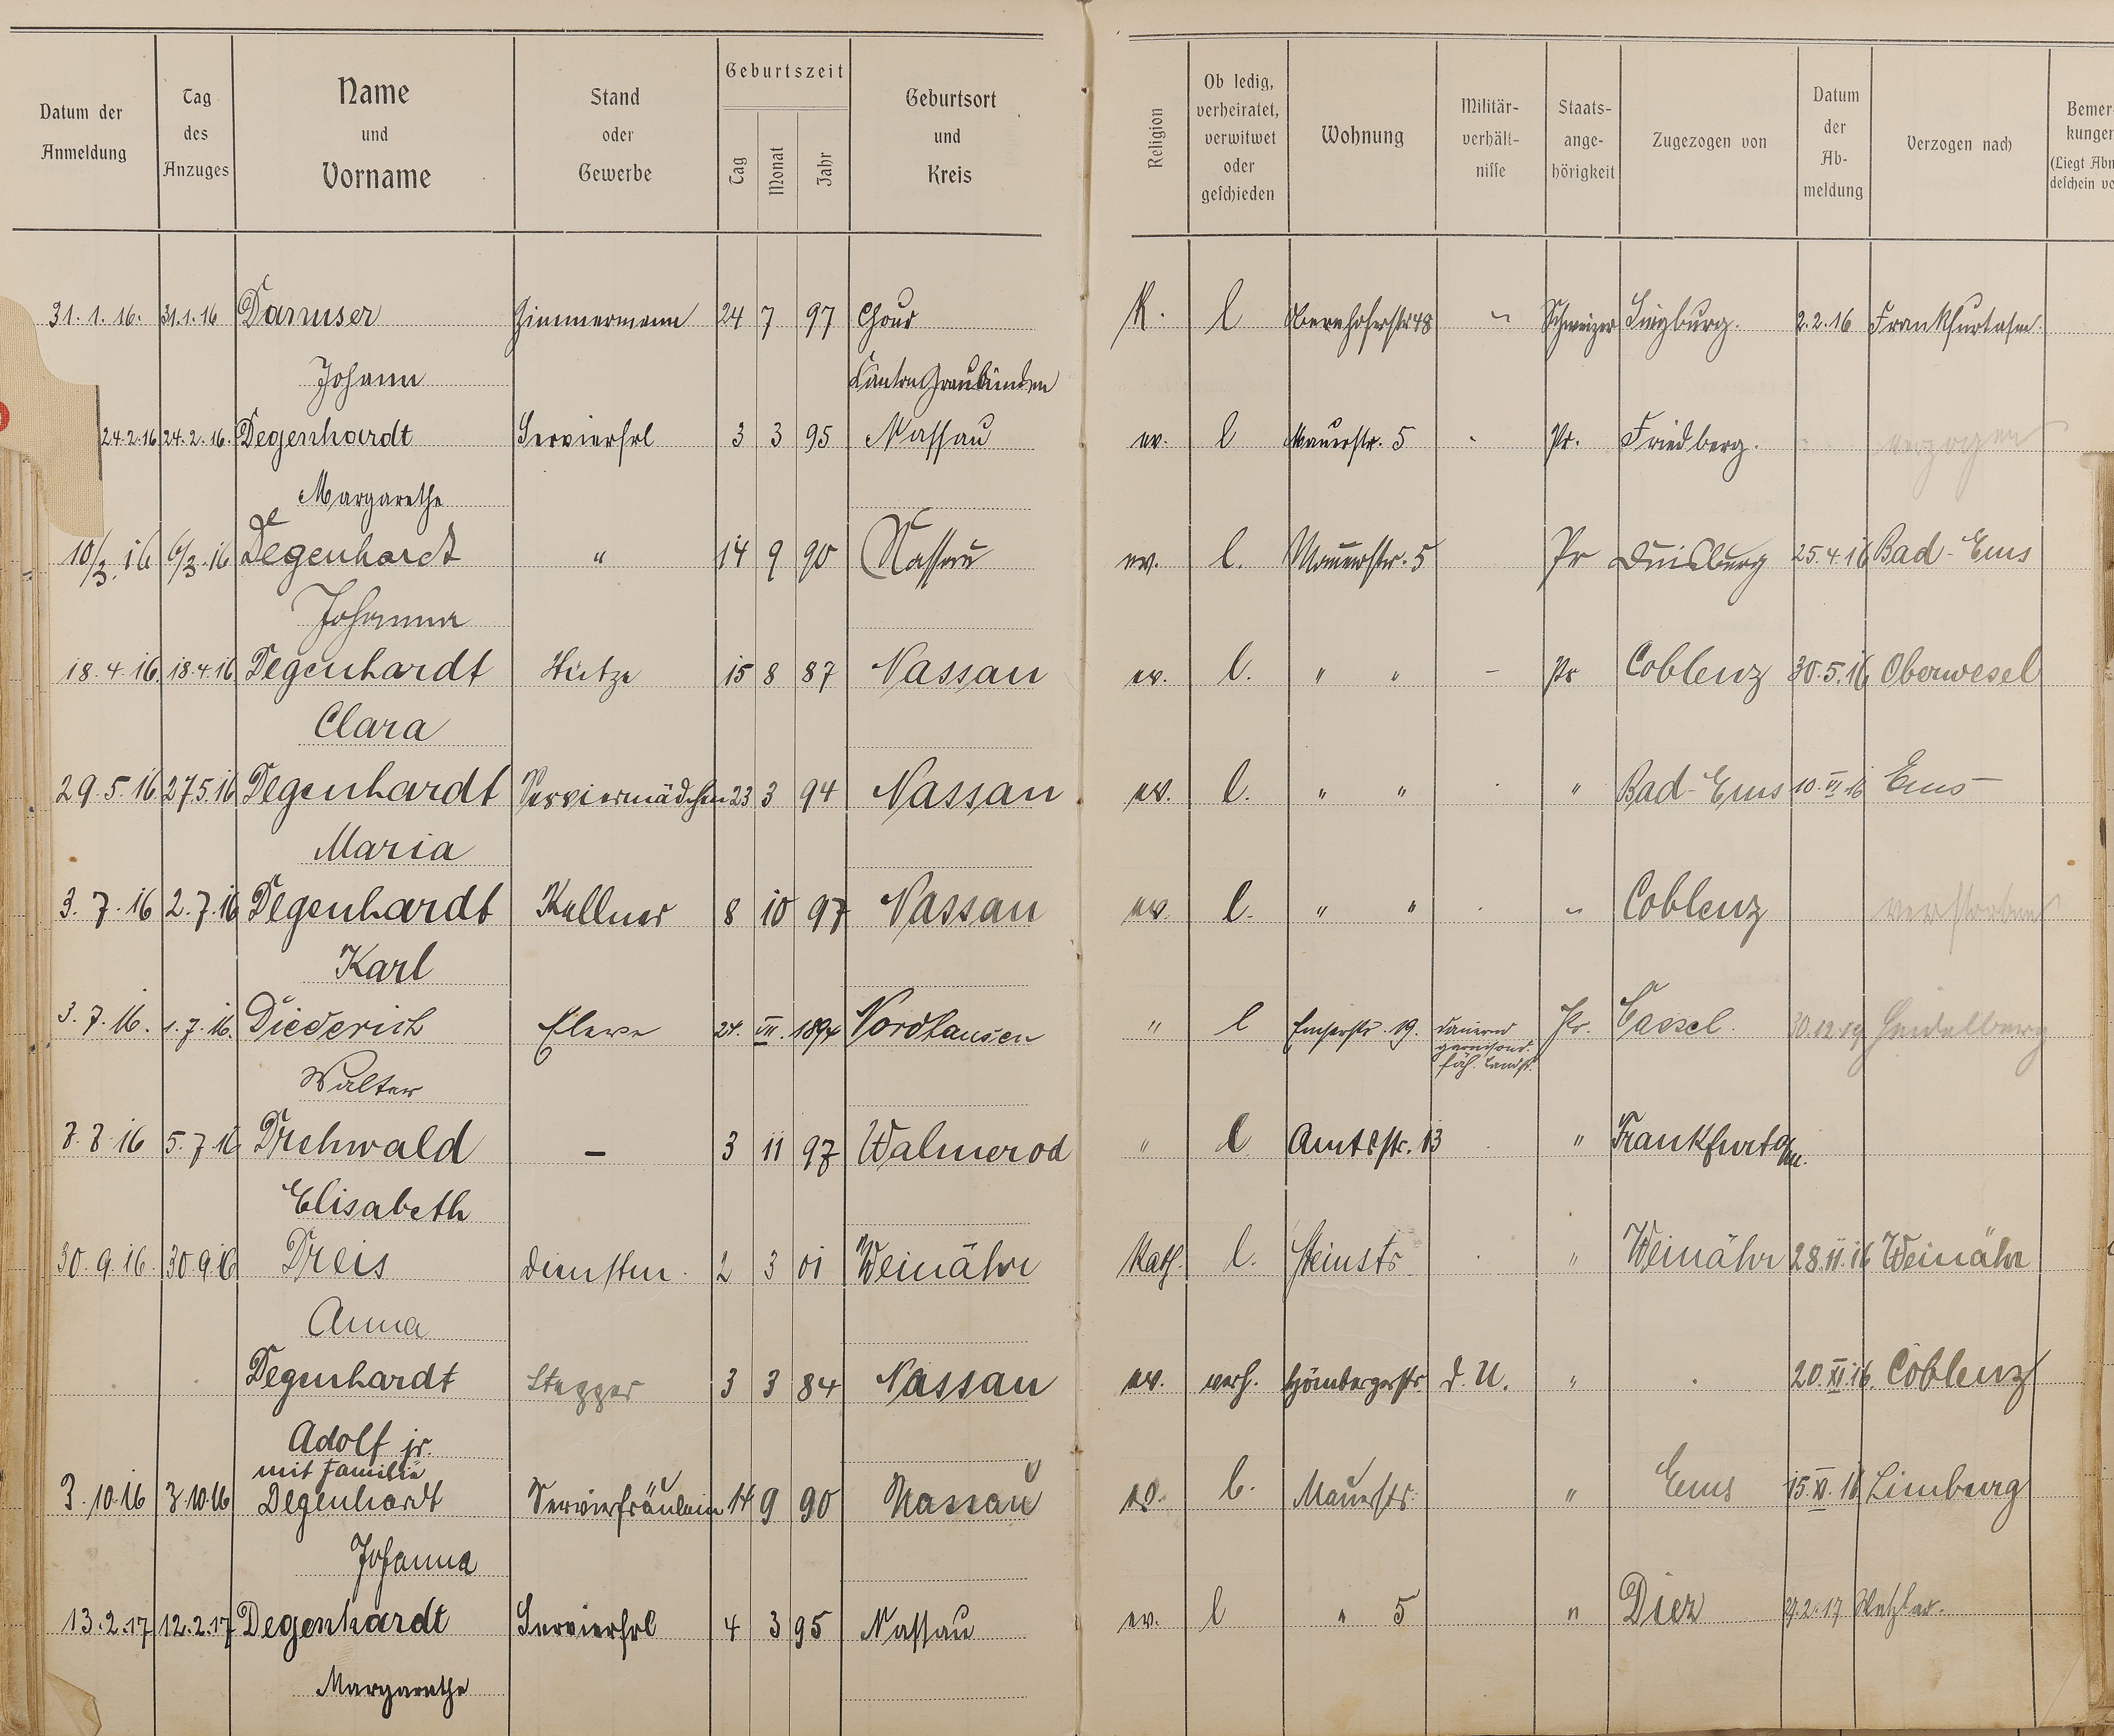 Datum der Anmeldung | Tag des Anzuges | Name und Vorname | Stand oder Gewerbe | Geburtszeit Tag Monat Jahr | Geburtsort und Kreis | Religion | Ob ledig, verheiratet, verwitwet oder geschieden | Wohnung | Militär-verhält-nisse | Staats-ange-hörigkeit | Zugezogen von | Datum der Ab-meldung | Verzogen nach | Bemer-kungen (Liegt Abm
31.1.16. 31.1.16 Danuser Zimmermann 24 7 97 Chour K. l Obernhoferstr 48 " Schweizer Siegburg. 2.2.16 Frankfurt a/m.
Johann Kanton Graubünden
24.2.16 24.2.16. Degenhardt Servierfrl 3 3 95 Nassau ev. l Mauerstr. 5 Pr. Friedberg. verzogen
Margarethe
10/3.16 6/3.16 Degenhardt " 14 9 90 Nassau ev. l. Mauerstr. 5 Pr Duisburg 25.4.16 Bad-Ems
Johanna
18.4.16. 18.4.16 Degenhardt Stütze 15 8 87 Nassau ev. l. " " – Pr Coblenz 30.5.16 Oberwesel
Clara
29.5.16. 27.5.16 Degenhardt Serviermädchen 23 3 94 Nassau ev. l. " " " Bad-Ems 10.VI.16 Ems
Maria
3.7.16 2.7.16 Degenhardt Kellner 8 10 97 Nassau ev. l. " " " Coblenz verstorben
Karl
3.7.16. 1.7.16. Diederich Eleve 24. VII. 1894 Nordhausen " l Emserstr. 19. dauernd garnisond. fäh. Landst. Pr. Cassel. 30.12.19 Heidelberg
Walter
7.7.16 5.7.16 Drehwald – 3 11 97 Walmerod " l Amtsstr. 13 " Frankfurt a/m.
Elisabeth
30.9.16. 30.9.16 Dreis Dienstm. 2 3 01 Weinähr Kath. l. Steinstr " Weinähr 28.11.16 Weinähr
Anna
Degenhardt 3 3 84 Nassau ev. verh. Hömbergerstr d.U. " 20.XI.16. Coblenz
Adolf jr.
mit Familie
3.10.16 3.10.16 Degenhardt Servierfräulein 14 9 90 Nassau ev. l. Mauerstr. " Ems 15.XI.16 Limburg
Johanna
13.2.17 12.2.17 Degenhardt Servierfrl 4 3 95 Nassau ev. l " 5 " Diez 27.2.17 Wetzlar.
Margarethe